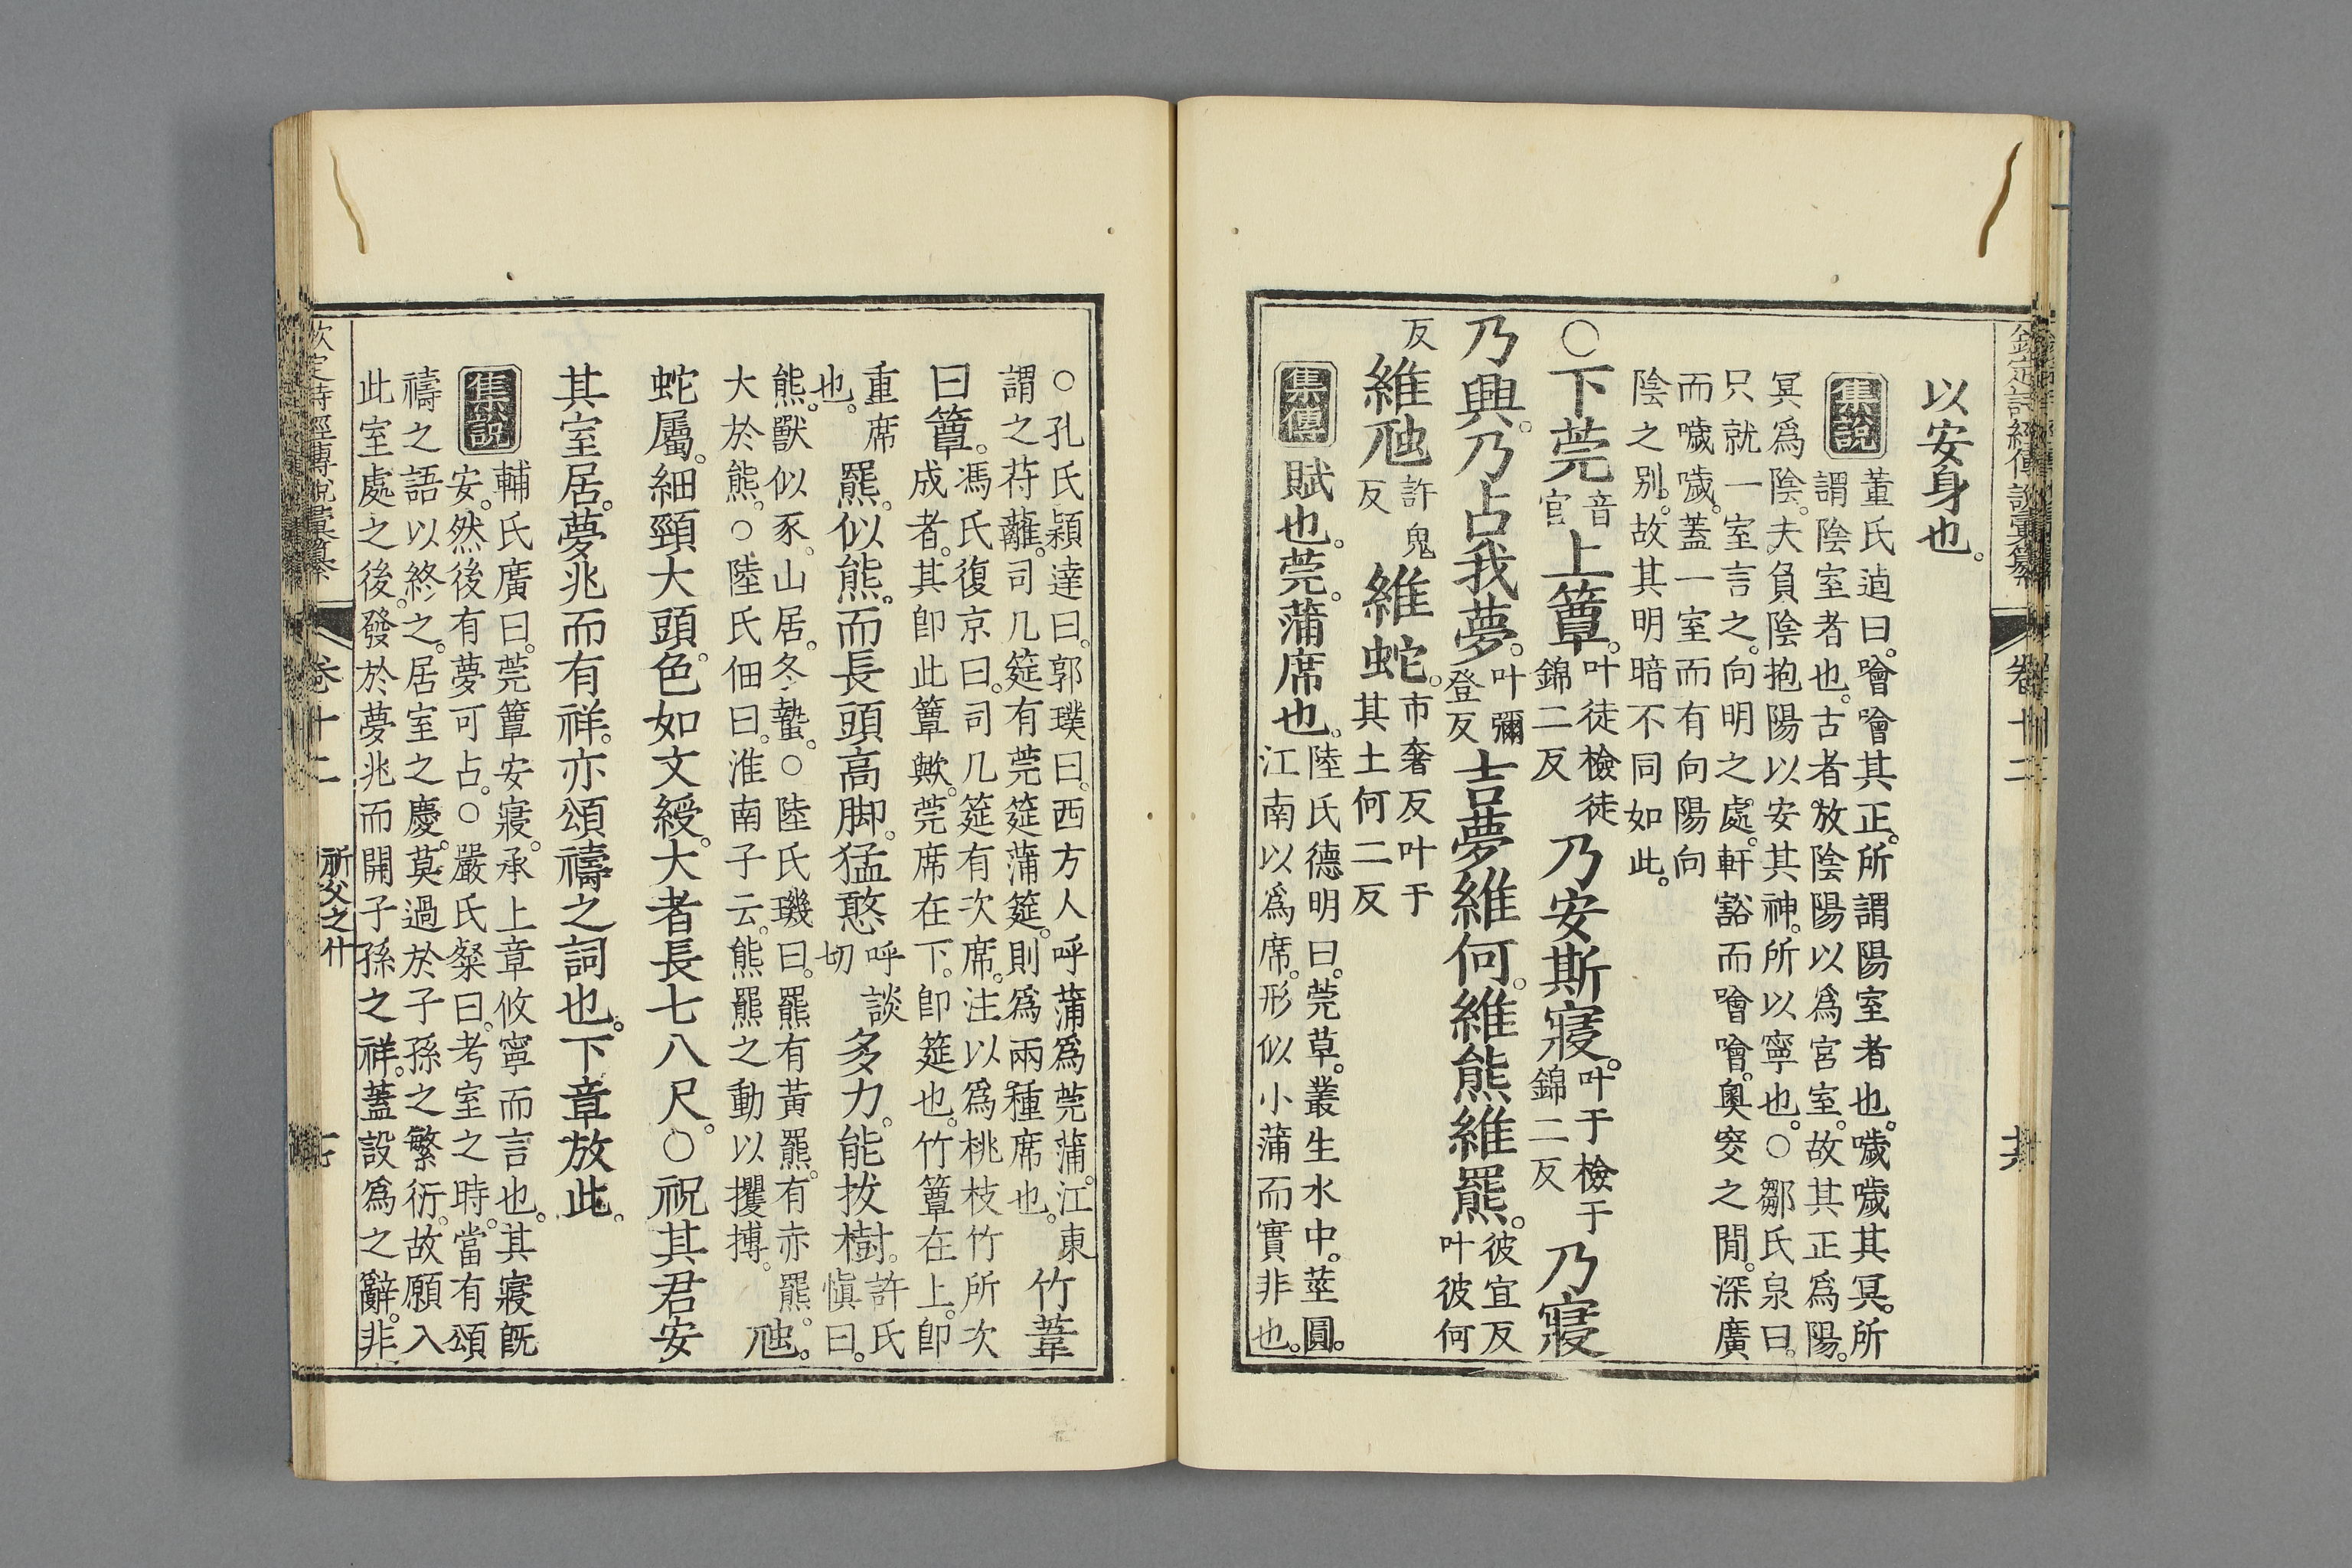 以安身也。
集說
董氏逌曰。噲噲其正。所謂陽室者也。噦噦其冥。所
謂陰室者也。古者放陰陽以爲宮室。故其正爲陽。
冥爲陰。夫負陰抱陽以安其神。所以寧也。○鄒氏泉曰。
只就一室言之。向明之處。軒豁而噲噲。奧窔之閒。深廣
而噦噦。蓋一室而有向陽向
陰之別。故其明暗不同如此。
○下莞音官上簟。叶徒檢徒錦二反乃安斯寢。叶于檢于錦二反乃寢
乃興。乃占我夢。叶彌登反吉夢維何。維熊維羆。彼宜反叶彼何
反維虺許鬼反維蛇。市奢反叶于其土何二反
集傳
賦也。莞。蒲席也。陸氏德明曰。莞草。叢生水中。莖圓。
江南以爲席。形似小蒲而實非也。
欽定詩經傳說彙纂 卷十二
○孔氏穎達曰。郭璞曰。西方人呼蒲爲莞蒲。江東
謂之苻蘺。司几筵有莞筵蒲筵。則爲兩種席也。竹葦
曰簟。馮氏復京曰。司几筵有次席。注以爲桃枝竹所次
成者。其卽此簟歟。莞席在下。卽筵也。竹簟在上。卽
重席也。羆。似熊。而長頭高脚。猛憨呼談切多力。能拔樹。許氏愼曰。
熊。獸似豕。山居。冬蟄。○陸氏璣曰。羆有黃羆。有赤羆。
大於熊。○陸氏佃曰。淮南子云。熊羆之動以攫搏。虺。
蛇屬。細頸大頭。色如文綬。大者長七八尺。○祝其君安
其室居。夢兆而有祥。亦頌禱之詞也。下章放此。
集說
輔氏廣曰。莞簟安寢。承上章攸寧而言也。其寢旣
安。然後有夢可占。○嚴氏粲曰。考室之時。當有頌
禱之語以終之。居室之慶。莫過於子孫之繁衍。故願入
此室處之後。發於夢兆而開子孫之祥。蓋設爲之辭。非
欽定詩經傳說彙纂 卷十二 祈父之什